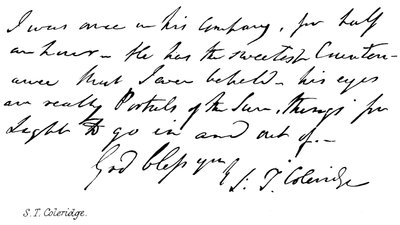 I was once in his company, for half
an hour - He has the sweetest Counten-
ance that I ever beheld - his eyes
are really Portals of the Sun, things for
Light to go in and out of. -
God bless you & S. T. Coleridge
S. T. Coleridge.